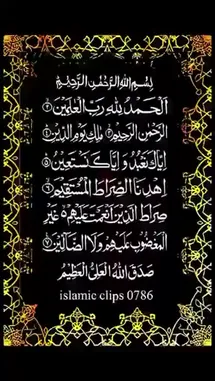 بِسْمِ اللهِ الرَّحْمٰنِ الرَّحِيْمِ
اَلْحَمْدُ لِلّٰهِ رَبِّ الْعٰلَمِيْنَ ۙ۱
الرَّحْمٰنِ الرَّحِيْمِ ۙ۲ مٰلِكِ يَوْمِ الدِّيْنِ ؕ۳
اِيَّاكَ نَعْبُدُ وَاِيَّاكَ نَسْتَعِيْنُ ؕ۴
اِهْدِنَا الصِّرَاطَ الْمُسْتَقِيْمَ ۙ۵
صِرَاطَ الَّذِيْنَ اَنْعَمْتَ عَلَيْهِمْ ۙ۶ غَيْرِ
الْمَغْضُوْبِ عَلَيْهِمْ وَلَا الضَّآلِّيْنَ ۧ۷
صَدَقَ اللهُ الْعَلِىُّ الْعَظِيْمُ
islamic clips 0786